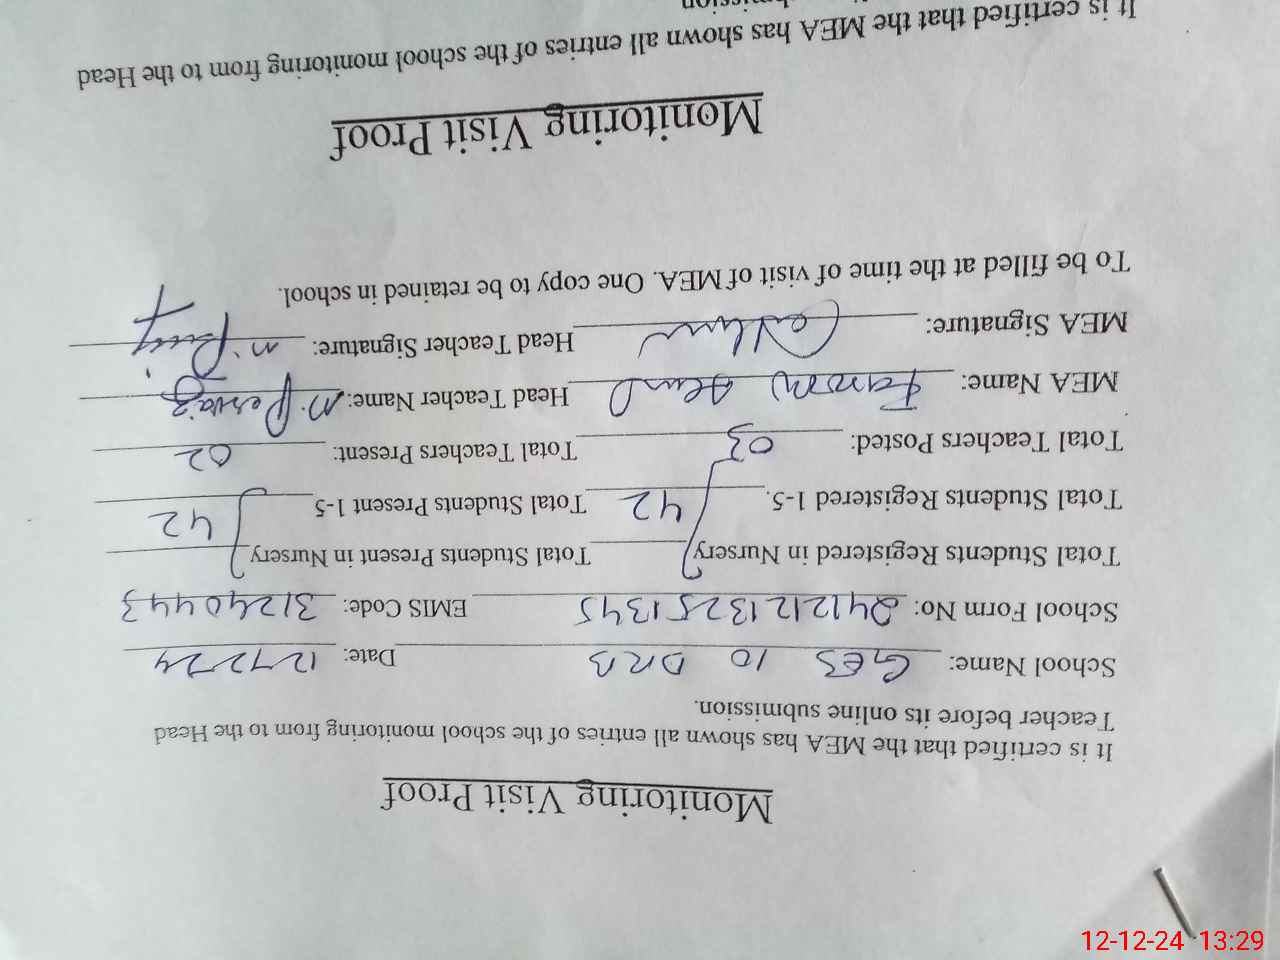 Monitoring Visit Proof
It is certified that the MEA has shown all entries of the school monitoring from to the Head
Teacher before its online submission.
School Name: GES 10 DNB Date: 12-12-24
School Form No: 24121213251345 EMIS Code: 31240443
Total Students Registered in Nursery Total Students Present in Nursery
Total Students Registered 1-5. 42 Total Students Present 1-5 42
Total Teachers Posted: 03 Total Teachers Present: 02
MEA Name: Head Teacher Name: M. Pervaiz
MEA Signature: Head Teacher Signature:
To be filled at the time of visit of MEA. One copy to be retained in school.
Monitoring Visit Proof
It is certified that the MEA has shown all entries of the school monitoring from to the Head
12-12-24 13:29